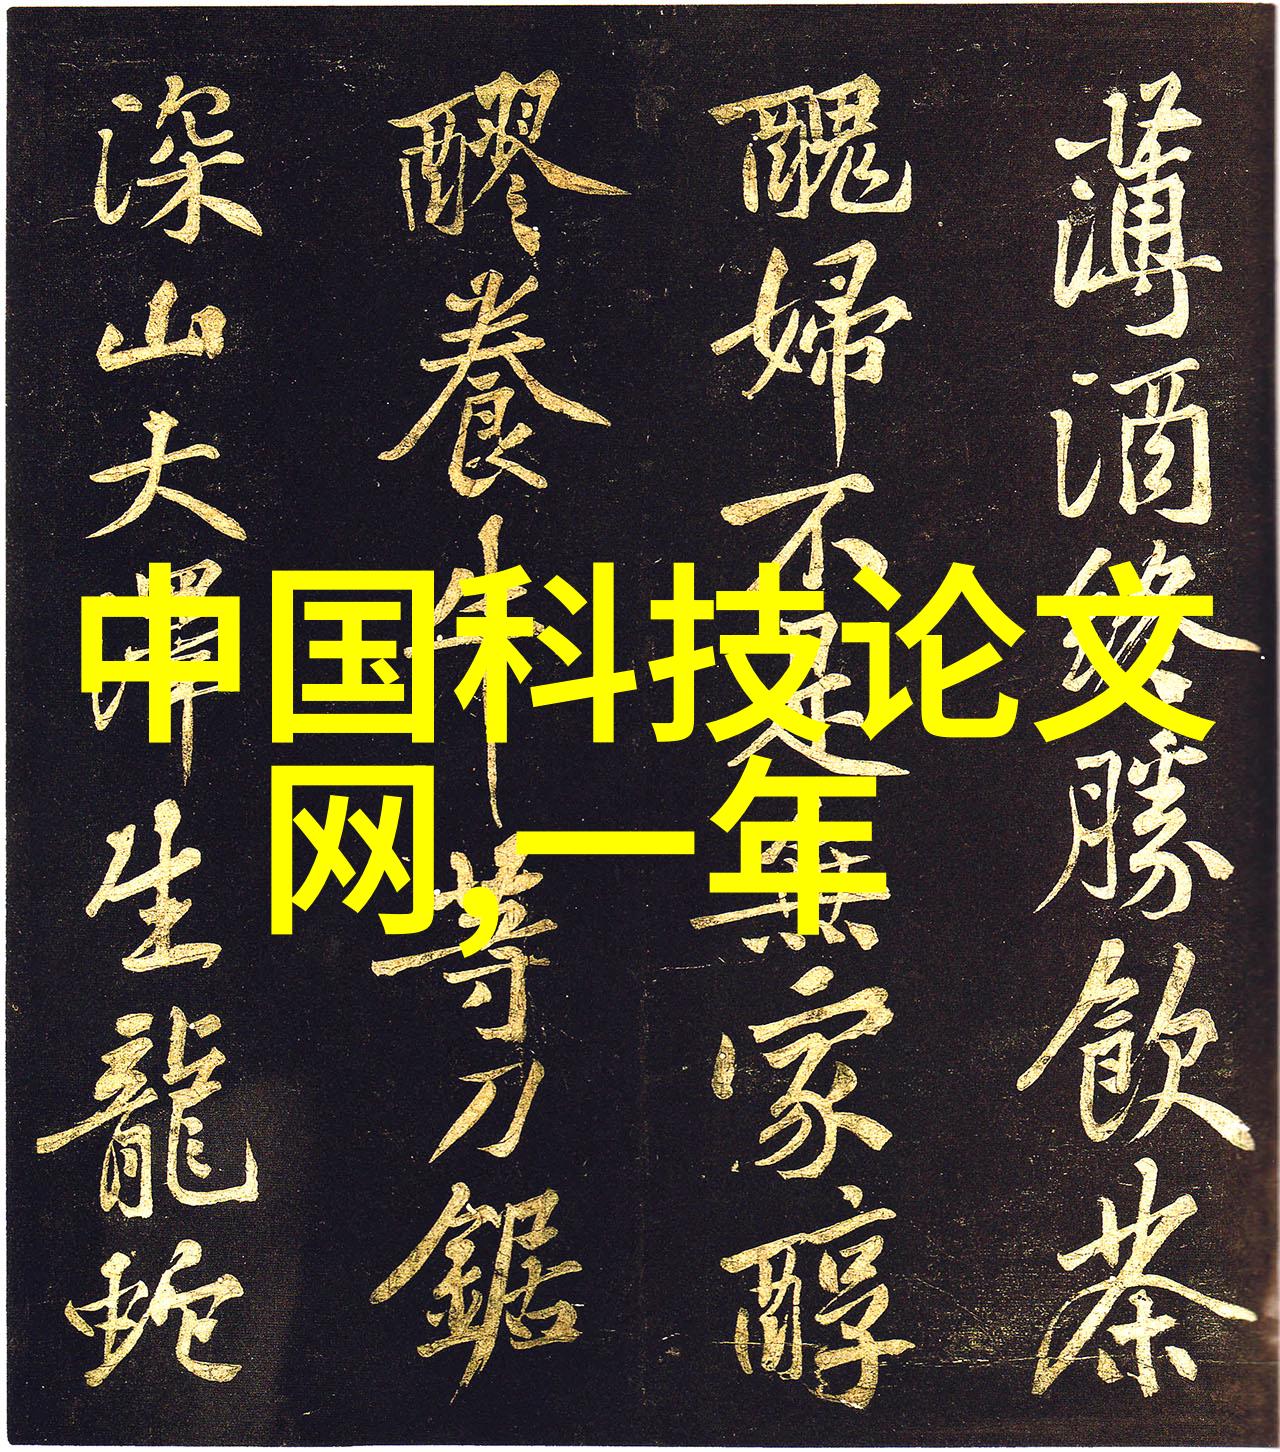 薄酒終勝飲茶
醜婦不是無家醇
醪養牛等刀鋸
深山大澤生龍蛇
中国科技论文
网,一年